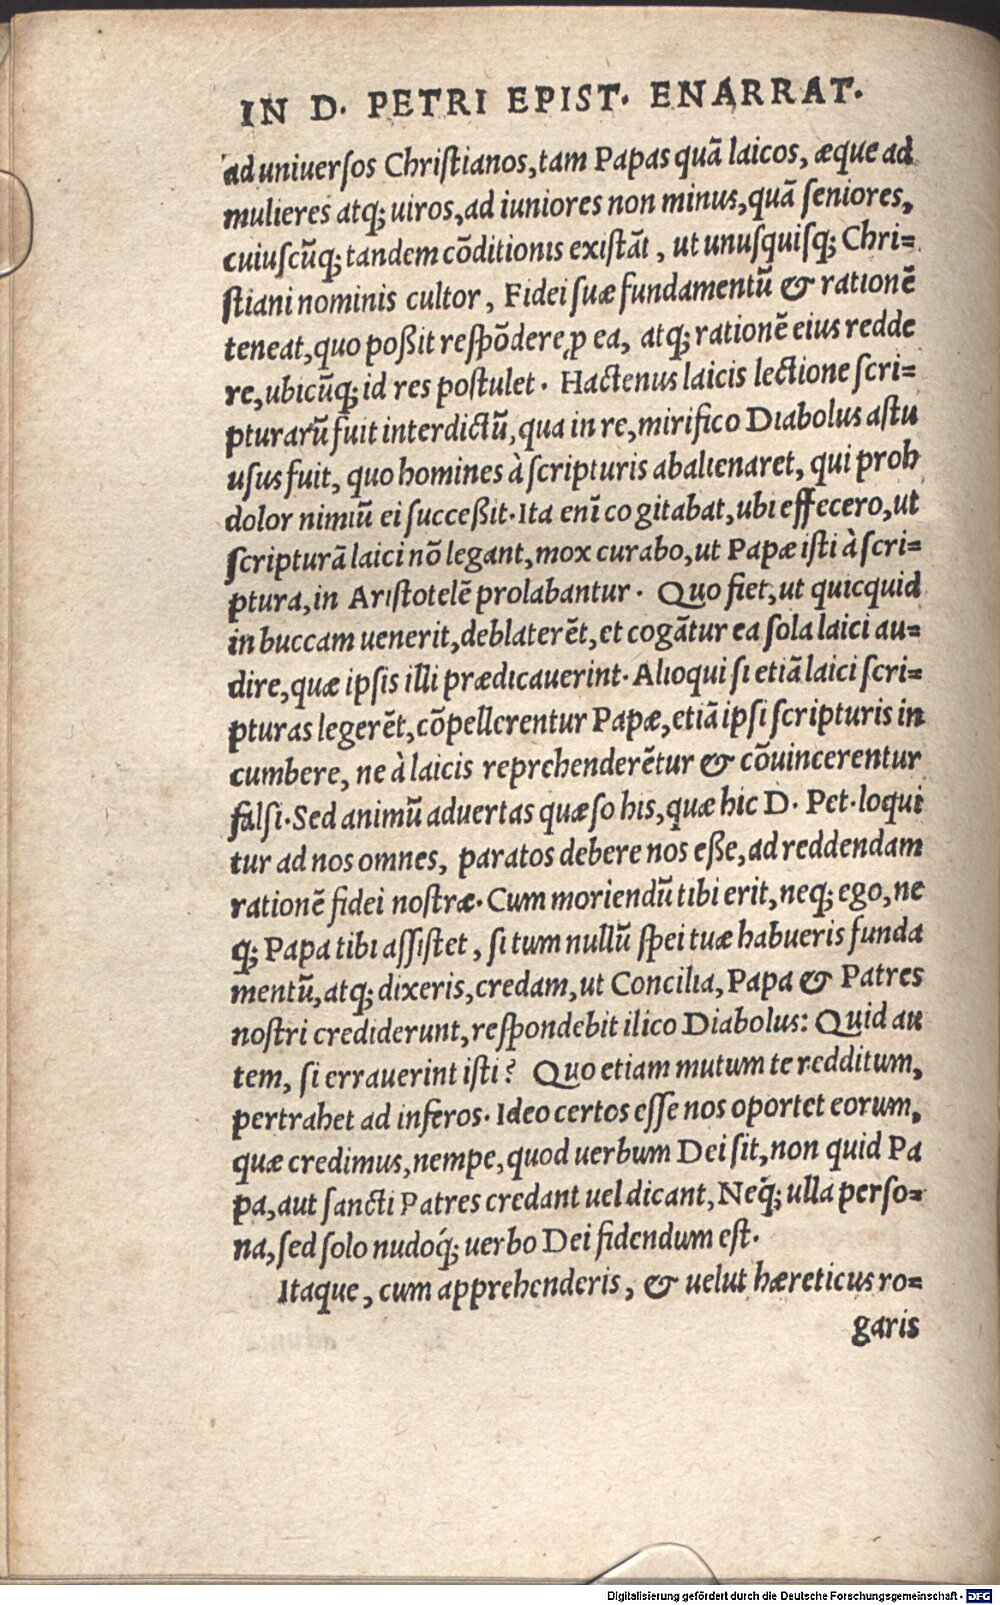 IN D. PETRI EPIST. ENARRAT.
ad uniuersos Christianos, tam Papas quã laicos, æque ad
mulieres atq; uiros, ad iuniores non minus, quã seniores,
cuiuscũq; tandem cõditionis existãt, ut unusquisq; Chri=
stiani nominis cultor, Fidei suæ fundamentũ & rationẽ
teneat, quo poßit respõdere ꝓ ea, atq; rationẽ eius redde
re, ubicũq; id res postulet. Hactenus laicis lectione scri=
pturarũ fuit interdictũ, qua in re, mirifico Diabolus astu
usus fuit, quo homines à scripturis abalienaret, qui proh
dolor nimiũ ei succeßit. Ita enĩ cogitabat, ubi effecero, ut
scripturã laici nõ legant, mox curabo, ut Papæ isti à scri=
ptura, in Aristotelẽ prolabantur. Quo fiet, ut quicquid
in buccam uenerit, deblaterẽt, et cogãtur ea sola laici au=
dire, quæ ipsis illi prædicauerint. Alioqui si etiã laici scri=
pturas legerẽt, cõpellerentur Papæ, etiã ipsi scripturis in
cumbere, ne à laicis reprehenderẽtur & cõuincerentur
falsi. Sed animũ aduertas quæso his, quæ hic D. Pet. loqui
tur ad nos omnes, paratos debere nos eße, ad reddendam
rationẽ fidei nostræ. Cum moriendũ tibi erit, neq; ego, ne
q; Papa tibi assistet, si tum nullũ spei tuæ habueris funda
mentũ, atq; dixeris, credam, ut Concilia, Papa & Patres
nostri crediderunt, respondebit ilico Diabolus: Quid au
tem, si errauerint isti? Quo etiam mutum te redditum,
pertrahet ad inferos. Ideo certos esse nos oportet eorum,
quæ credimus, nempe, quod uerbum Dei sit, non quid Pa
pa, aut sancti Patres credant uel dicant, Neq́; ulla perso=
na, sed solo nudoq́; uerbo Dei fidendum est.
Itaque, cum apprehenderis, & uelut hæreticus ro=
garis
Digitalisierung gefördert durch die Deutsche Forschungsgemeinschaft - DFG